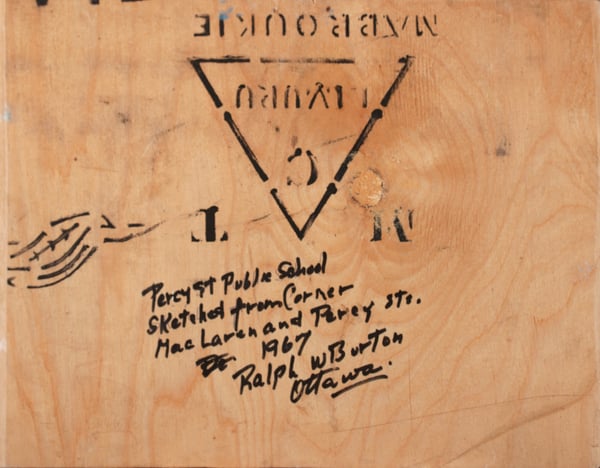 M T
C
LIMURU
MABROUKIE
Percy St Public School
Sketched from Corner
MacLaren and Percy sts.
1967
Ralph W Burton
Ottawa.